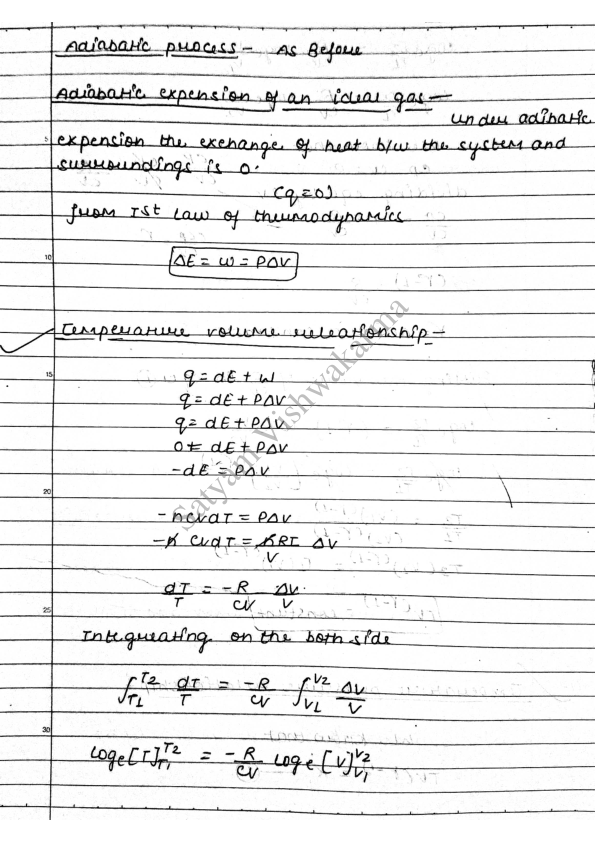 Adiabatic process - As Before
Adiabatic expension of an ideal gas -
under adibatic
expension the exchange of heat b/w the system and
surroundings is 0.
(q=0)
from Ist Law of thermodynamics
ΔE = W = PΔV
Temperature volume releationship -
q = dE + W
q = dE + PΔV
q = dE + PΔV
0 = dE + PΔV
-dE = PΔV
-nCvdT = PΔV
-n CvdT = nRT/V ΔV
dT/T = -R/CV ΔV/V
Integreating on the both side
∫T1^T2 dT/T = -R/CV ∫V1^V2 ΔV/V
loge[T]T1^T2 = -R/CV loge[V]V1^V2
Satyam Vishwakarma
5
10
15
20
25
30